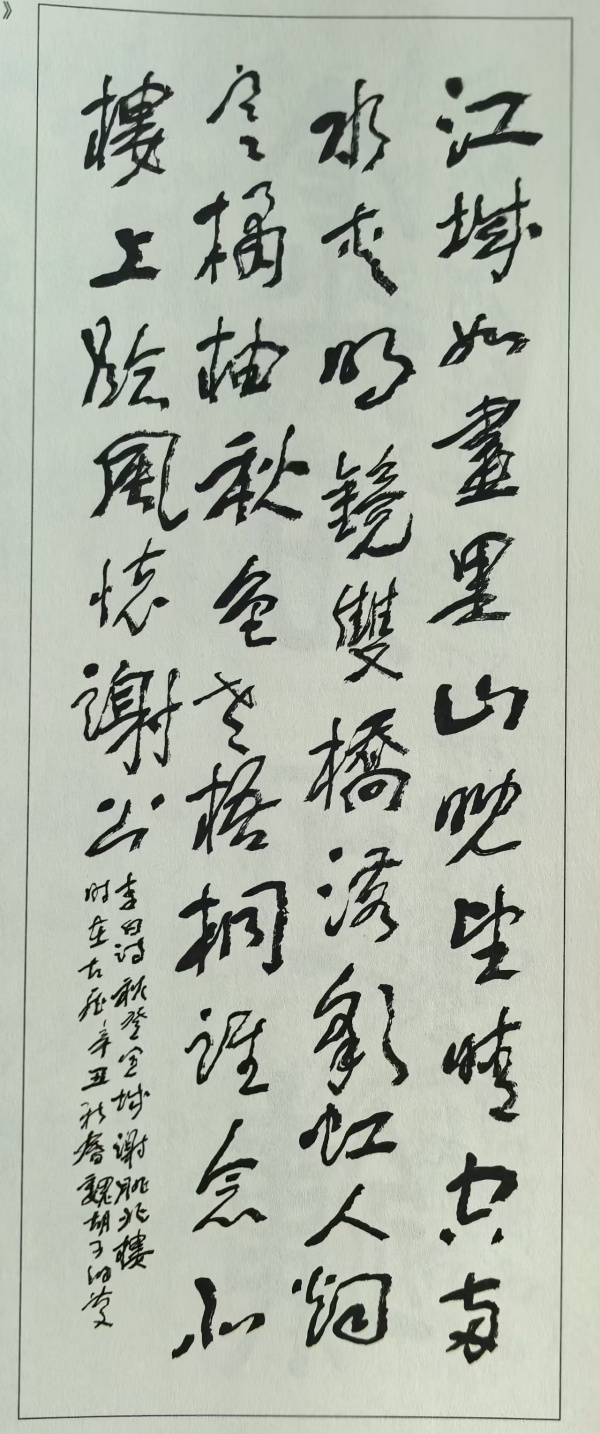 》
江城如畫里山晚望晴空两
水夾明鏡雙橋落彩虹人烟
寒橘柚秋色老梧桐誰念北
樓上臨風懷謝公
李白詩秋登宣城謝朓北樓
时在古歷辛丑魏胡子